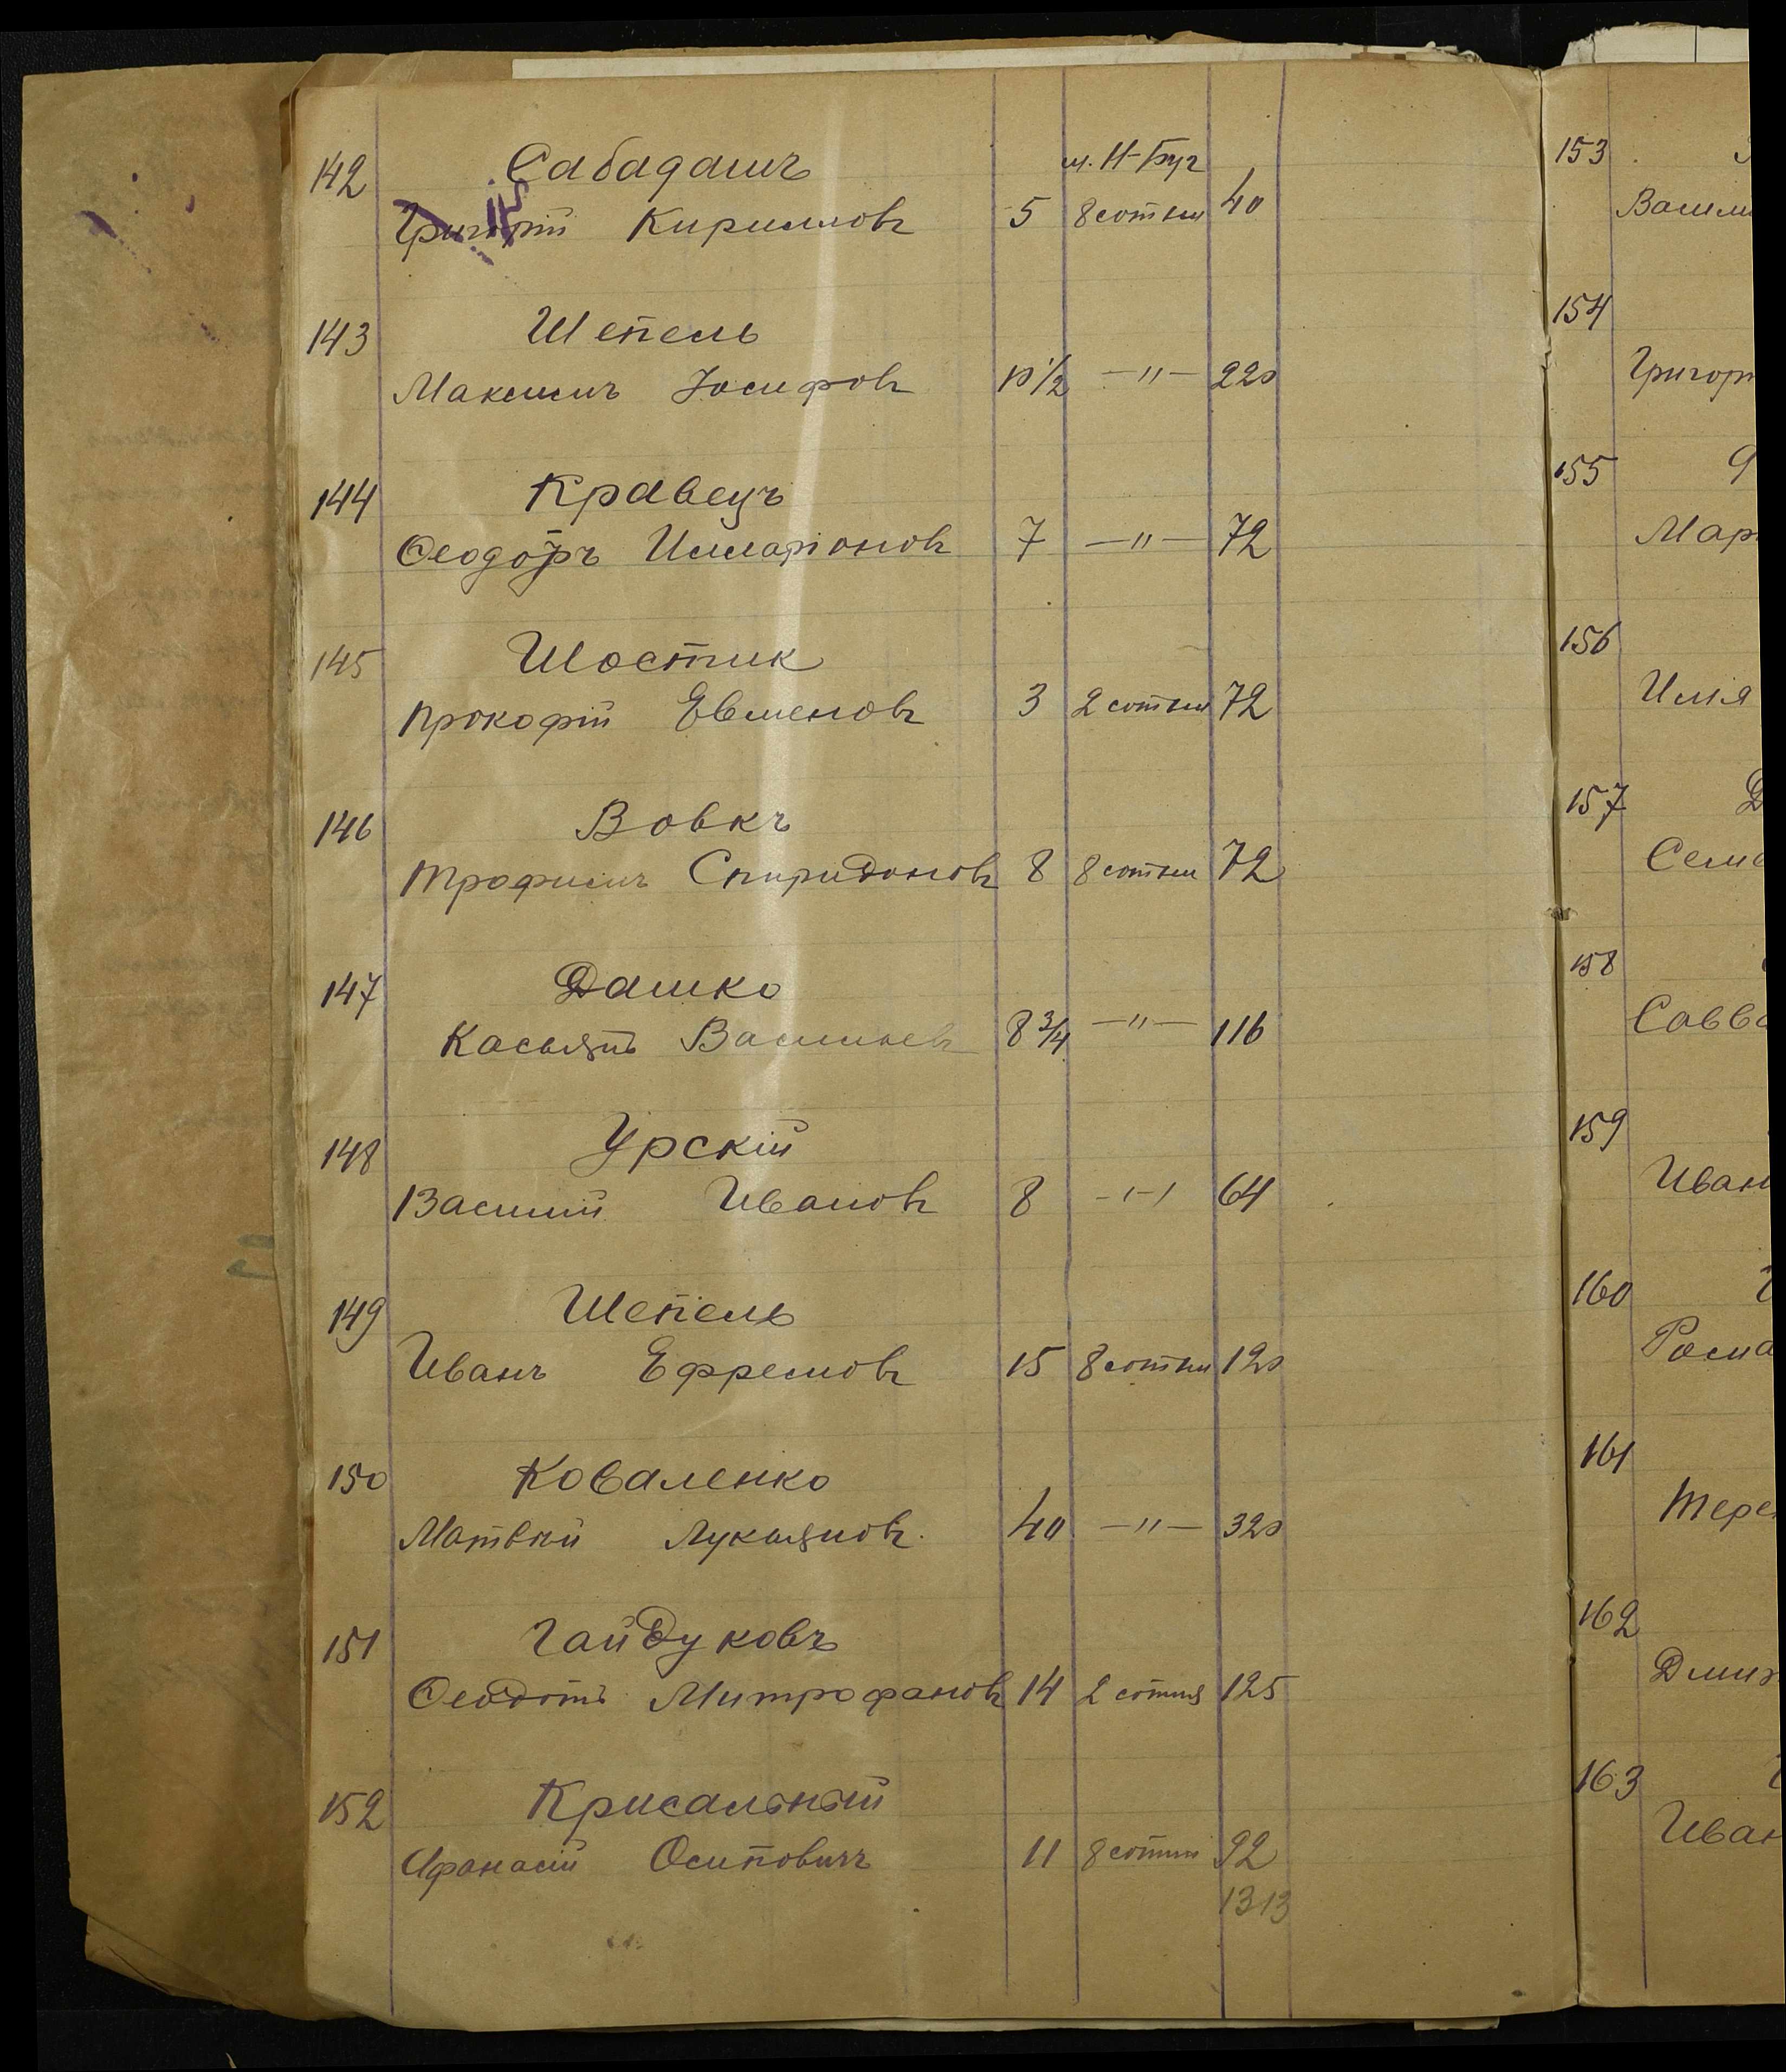 142 Сабадашъ м. Н-Буг
Григорій Кирилловъ 5 8 сотни 40
143 Шепель
Максимъ Іосифовъ 10 1/2 —"— 220
144 Кравецъ
Ѳеодоръ Илларіоновъ 7 —"— 72
145 Шостик
Прокофій Евменовъ 3 2 сотни 72
146 Вовкъ
Трофимъ Спиридоновъ 8 8 сотни 72
147 Дашко
Касьянъ Васильевъ 8 3/4 —"— 116
148 Урскій
Василий Ивановъ 8 -"- 64
149 Шепель
Иванъ Ефремовъ 15 8 сотни 120
150 Коваленко
Матвѣй Лукьяновъ 40 —"— 320
151 Гайдуковъ
Ѳеодотъ Митрофановъ 14 2 сотня 125
152 Крисальный
Афанасій Осиповичъ 11 8 сотни 92
1313
153
154
Григор
155
Мар
156
Илія
157
Семе
158
Савва
159
Иван
160
Рома
161
Тере
162
Дмит
163
Иван